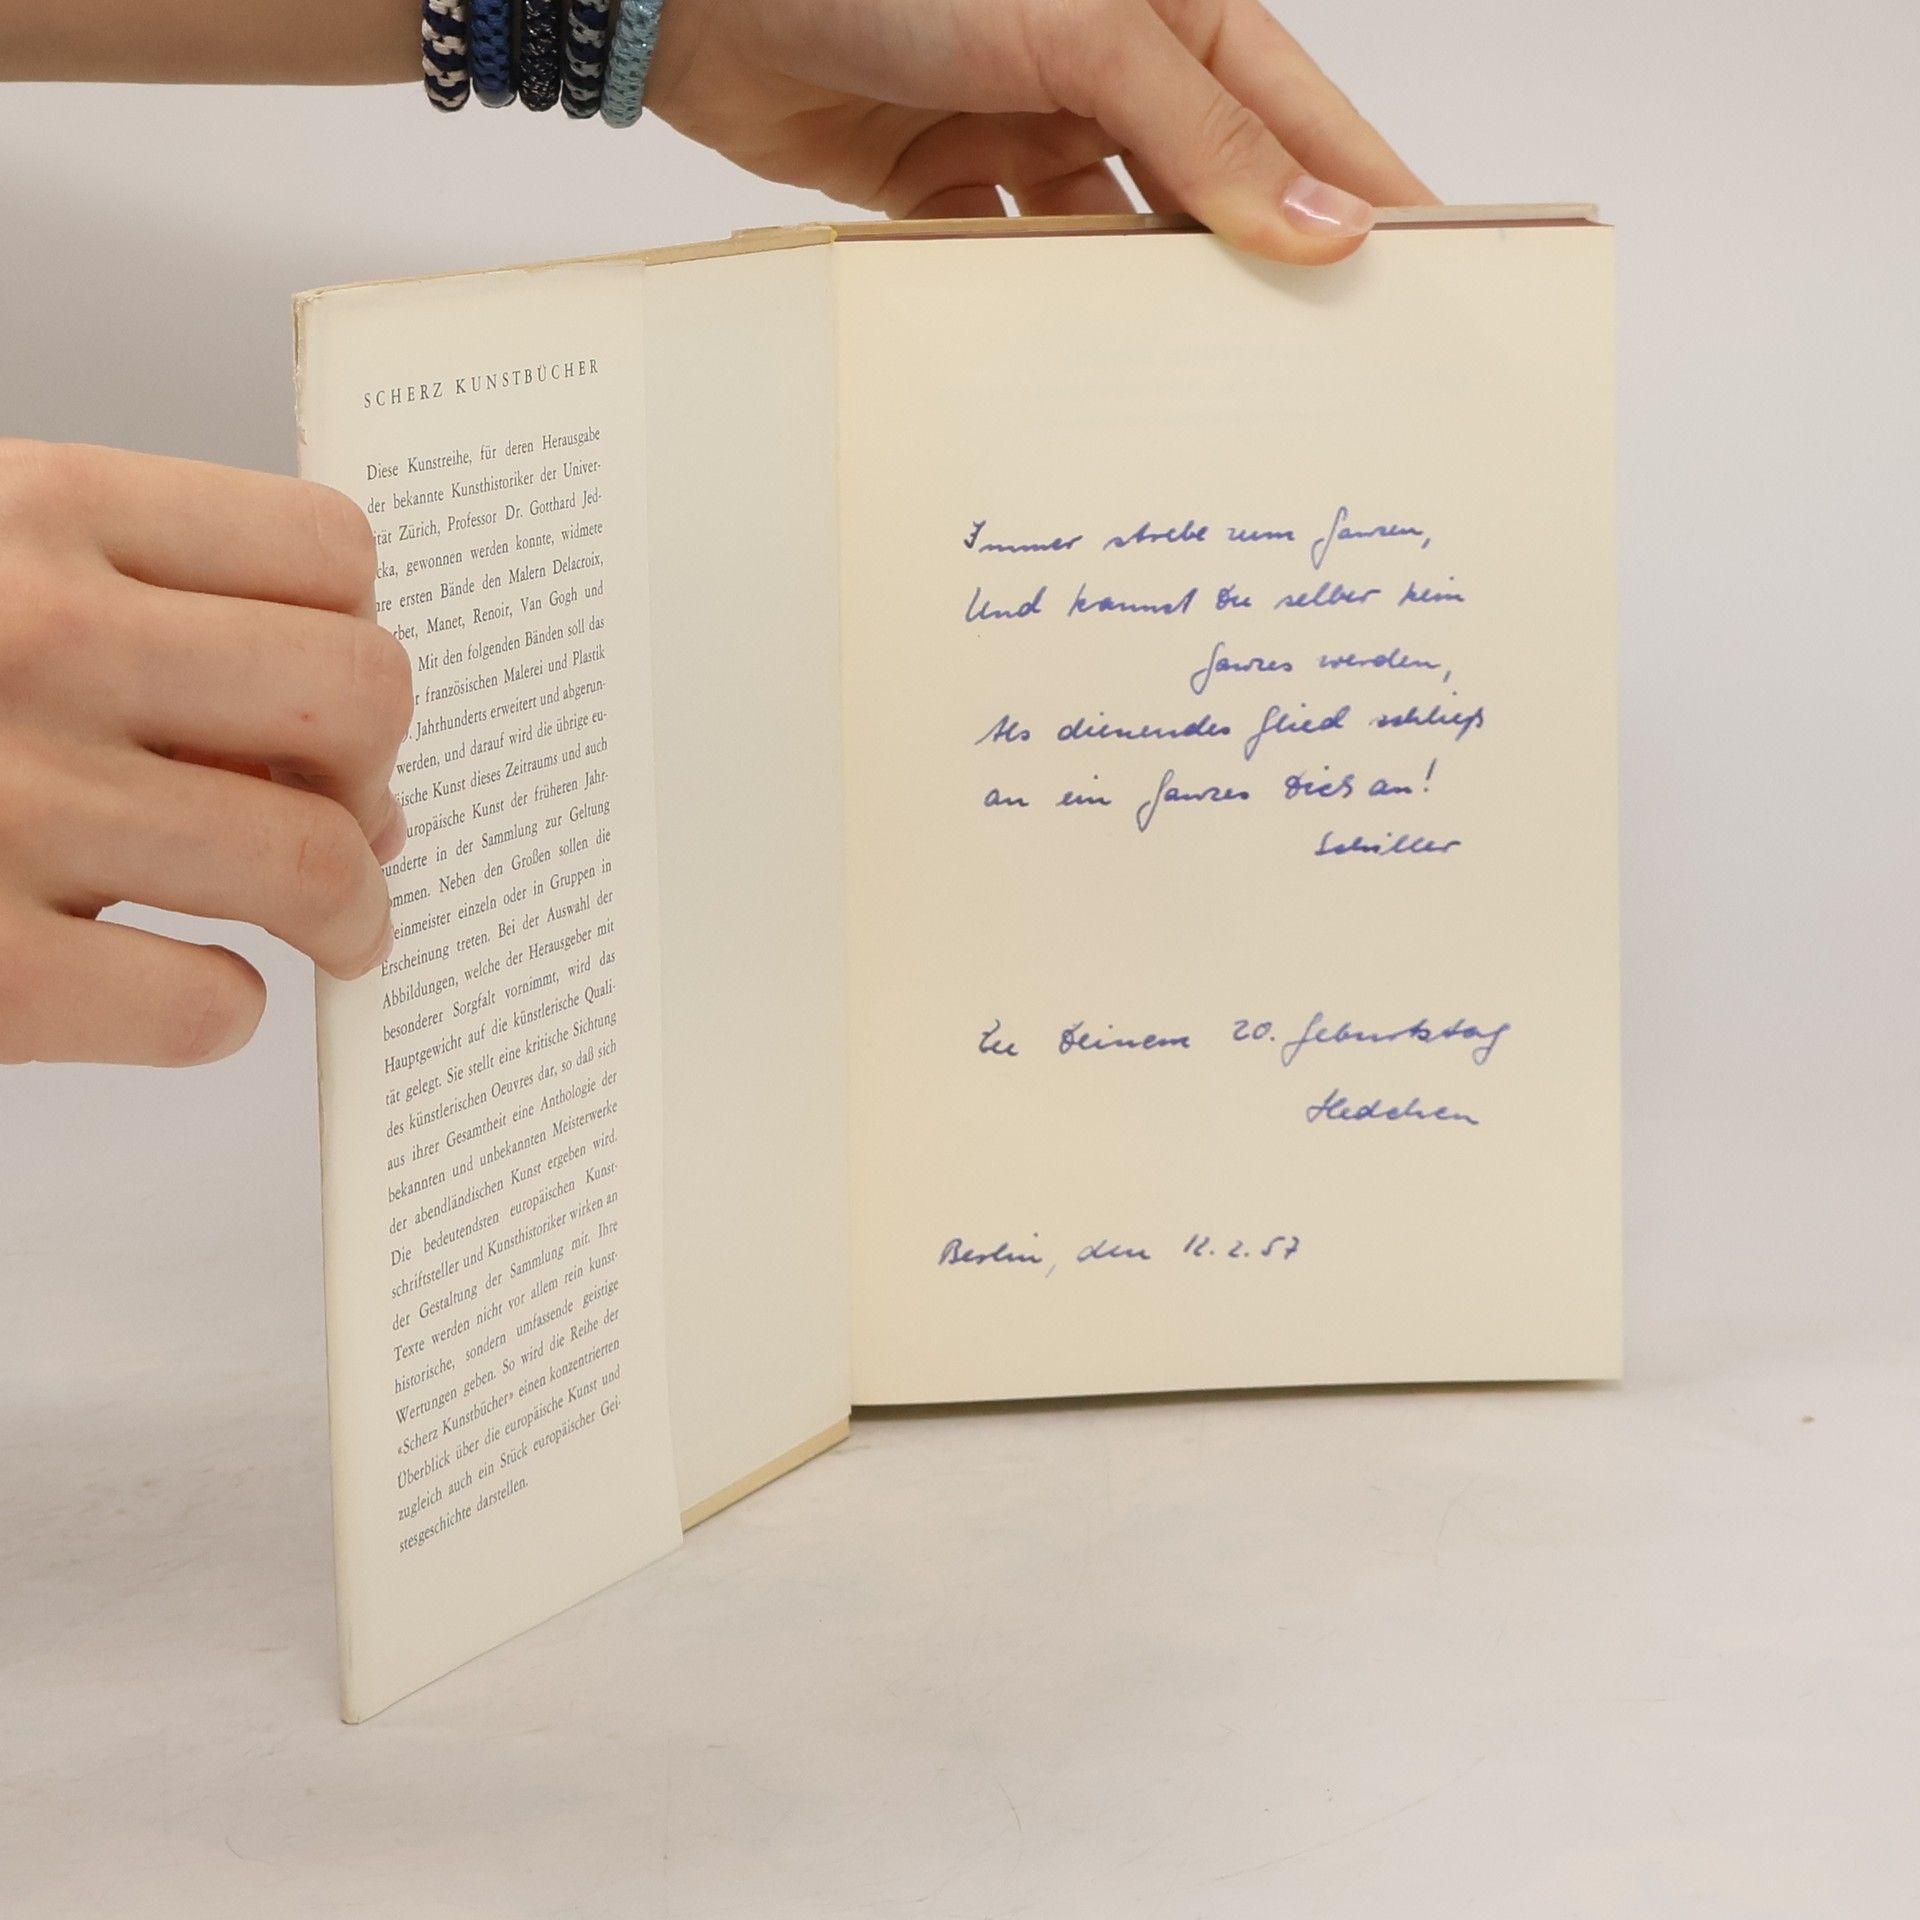 SCHERZ KUNSTBÜCHER
Diese Kunstreihe, für deren Herausgabe
der bekannte Kunsthistoriker der Univer-
ität Zürich, Professor Dr. Gotthard Jed-
cka, gewonnen werden konnte, widmete
hre ersten Bände den Malern Delacroix,
rbet, Manet, Renoir, Van Gogh und
Mit den folgenden Bänden soll das
r französischen Malerei und Plastik
. Jahrhunderts erweitert und abgerun-
werden, und darauf wird die übrige eu-
äische Kunst dieses Zeitraums und auch
uropäische Kunst der früheren Jahr-
underte in der Sammlung zur Geltung
ommen. Neben den Großen sollen die
einmeister einzeln oder in Gruppen in
Erscheinung treten. Bei der Auswahl der
Abbildungen, welche der Herausgeber mit
besonderer Sorgfalt vornimmt, wird das
Hauptgewicht auf die künstlerische Quali-
tät gelegt. Sie stellt eine kritische Sichtung
des künstlerischen Oeuvres dar, so daß sich
aus ihrer Gesamtheit eine Anthologie der
bekannten und unbekannten Meisterwerke
der abendländischen Kunst ergeben wird.
Die bedeutendsten europäischen Kunst-
schriftsteller und Kunsthistoriker wirken an
der Gestaltung der Sammlung mit. Ihre
Texte werden nicht vor allem rein kunst-
historische, sondern umfassende geistige
Wertungen geben. So wird die Reihe der
«Scherz Kunstbücher» einen konzentrierten
Überblick über die europäische Kunst und
zugleich auch ein Stück europäischer Gei-
stesgeschichte darstellen.
Immer strebe zum Ganzen,
Und kannst Du selber kein
Ganzes werden,
Als dienendes Glied schließ
an ein Ganzes Dich an!
Schiller
Zu Deinem 20. Geburtstag
Hedchen
Berlin, den 12.2.57